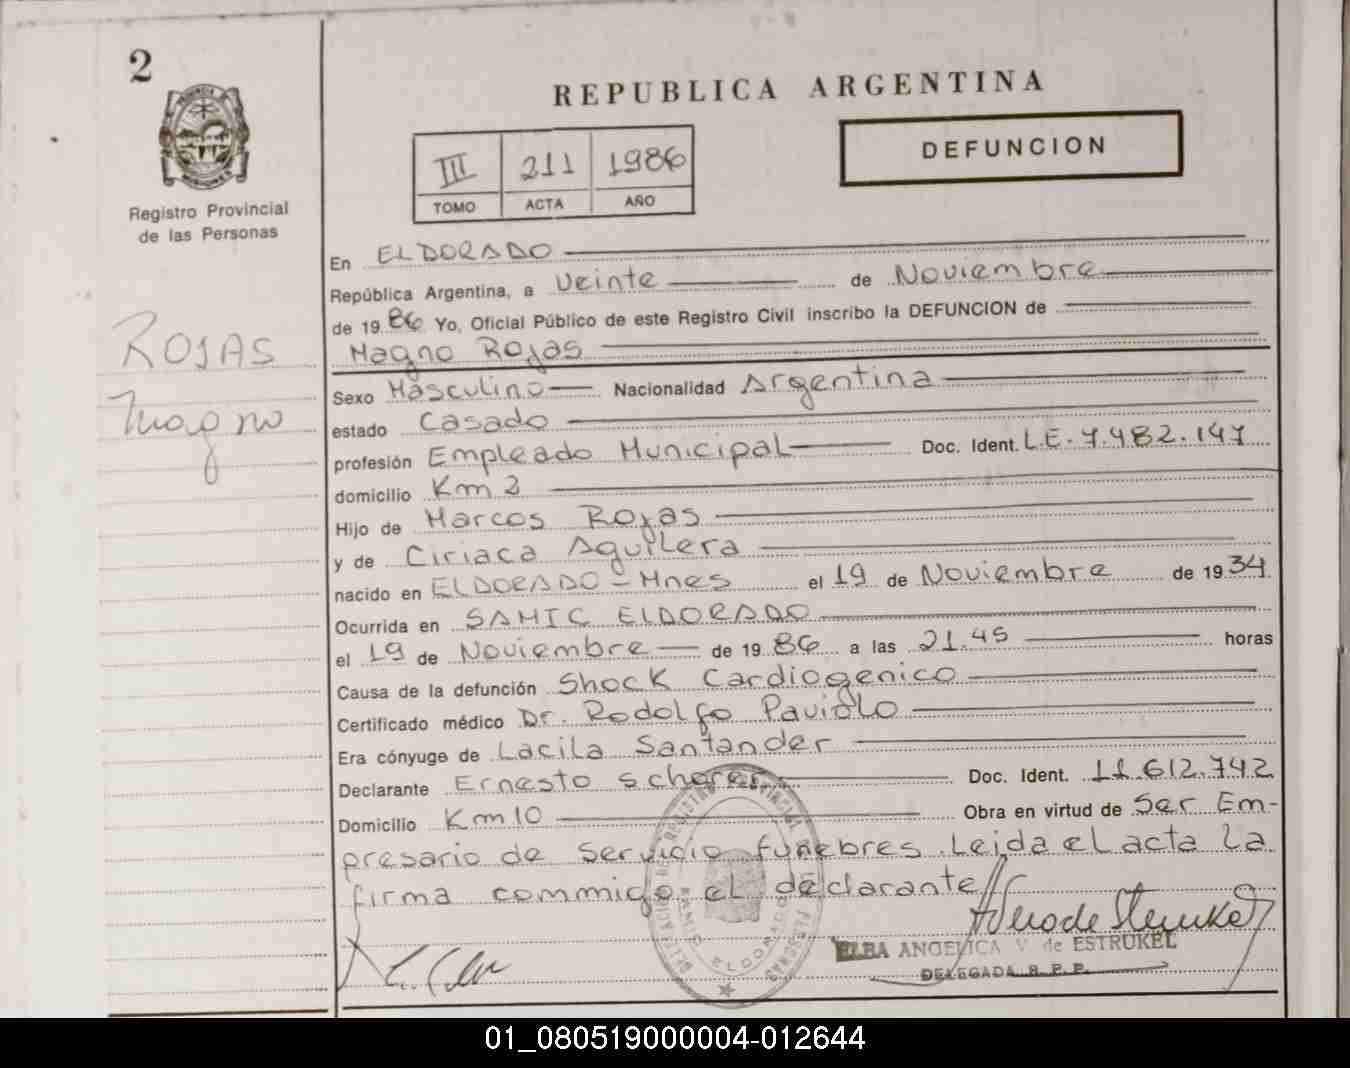 2
REPUBLICA ARGENTINA
III 211 1986
TOMO ACTA AÑO
DEFUNCION
Registro Provincial
de las Personas
ROJAS
Magno
En ELDORADO
República Argentina, a Veinte de Noviembre
de 1986 Yo, Oficial Público de este Registro Civil inscribo la DEFUNCION de
Magno Rojas
Sexo Masculino Nacionalidad Argentina
estado Casado
profesión Empleado Municipal Doc. Ident. L.E. 7.482.147
domicilio Km 2
Hijo de Marcos Rojas
y de Ciriaca Aguilera
nacido en ELDORADO - Mnes el 19 de Noviembre de 1934
Ocurrida en SAMIC ELDORADO
el 19 de Noviembre de 1986 a las 21.45 horas
Causa de la defunción Shock Cardiogenico
Certificado médico Dr. Rodolfo Paviolo
Era cónyuge de Lacila Santander
Declarante Ernesto Doc. Ident. 11.612.742
Domicilio Km 10 Obra en virtud de Ser Em-
presario de Servicio funebres. Leida el acta La
firma commigo el declarante
ELBA ANGELICA V. de ESTRUKEL
DELEGADA R. P. P.
01_080519000004-012644